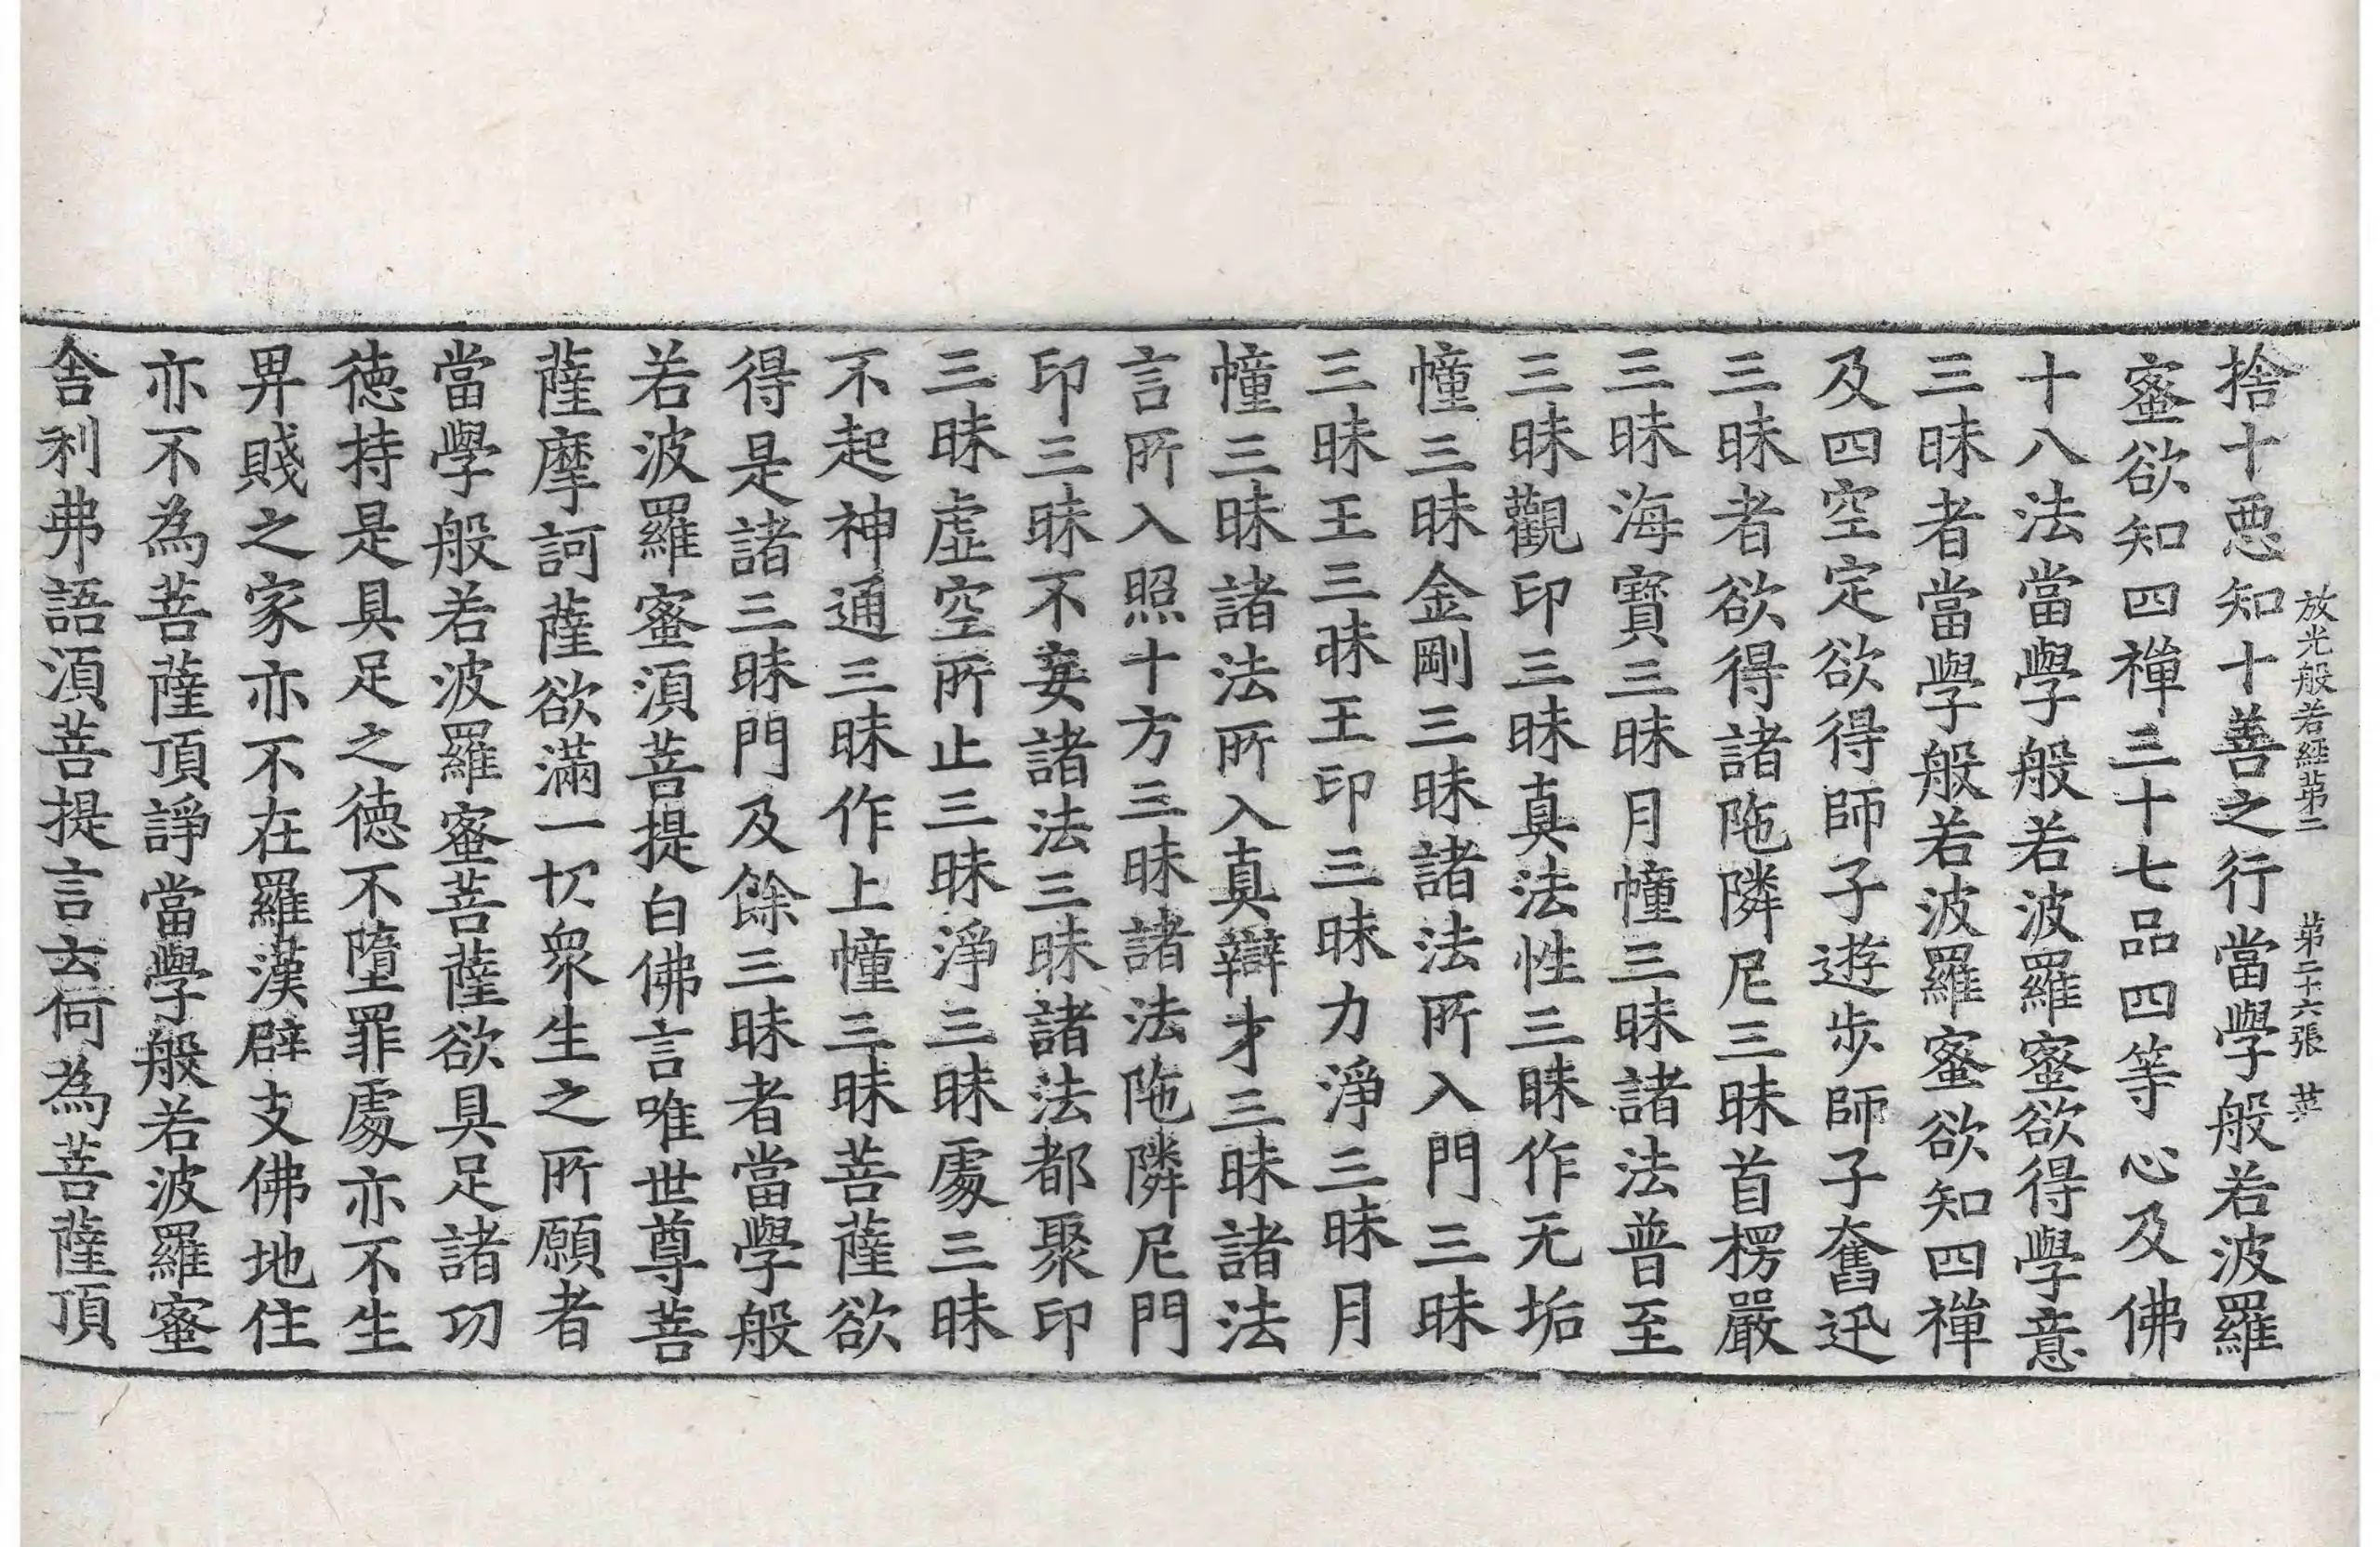 放光般若經苐二 苐二十六張 菜
捨十惡知十善之行當學般若波羅
蜜欲知四禪三十七品四等心及佛
十八法當學般若波羅蜜欲得學意
三昧者當學般若波羅蜜欲知四禪
及四空定欲得師子遊步師子奮迅
三昧者欲得諸陁隣尼三昧首楞嚴
三昧海寶三昧月幢三昧諸法普至
三昧觀印三昧真法性三昧作无垢
幢三昧金剛三昧諸法所入門三昧
三昧王三昧王印三昧力淨三昧月
幢三昧諸法所入真辯才三昧諸法
言所入照十方三昧諸法陁隣尼門
印三昧不妄諸法三昧諸法都聚印
三昧虛空所止三昧淨三昧處三昧
不起神通三昧作上幢三昧菩薩欲
得是諸三昧門及餘三昧者當學般
若波羅蜜湏菩提白佛言唯世尊菩
薩摩訶薩欲滿一切衆生之所願者
當學般若波羅蜜菩薩欲具足諸功
徳持是具足之徳不墮罪處亦不生
畀賤之家亦不在羅漢辟支佛地住
亦不為菩薩頂諍當學般若波羅蜜
舎利弗語湏菩提言云何為菩薩頂